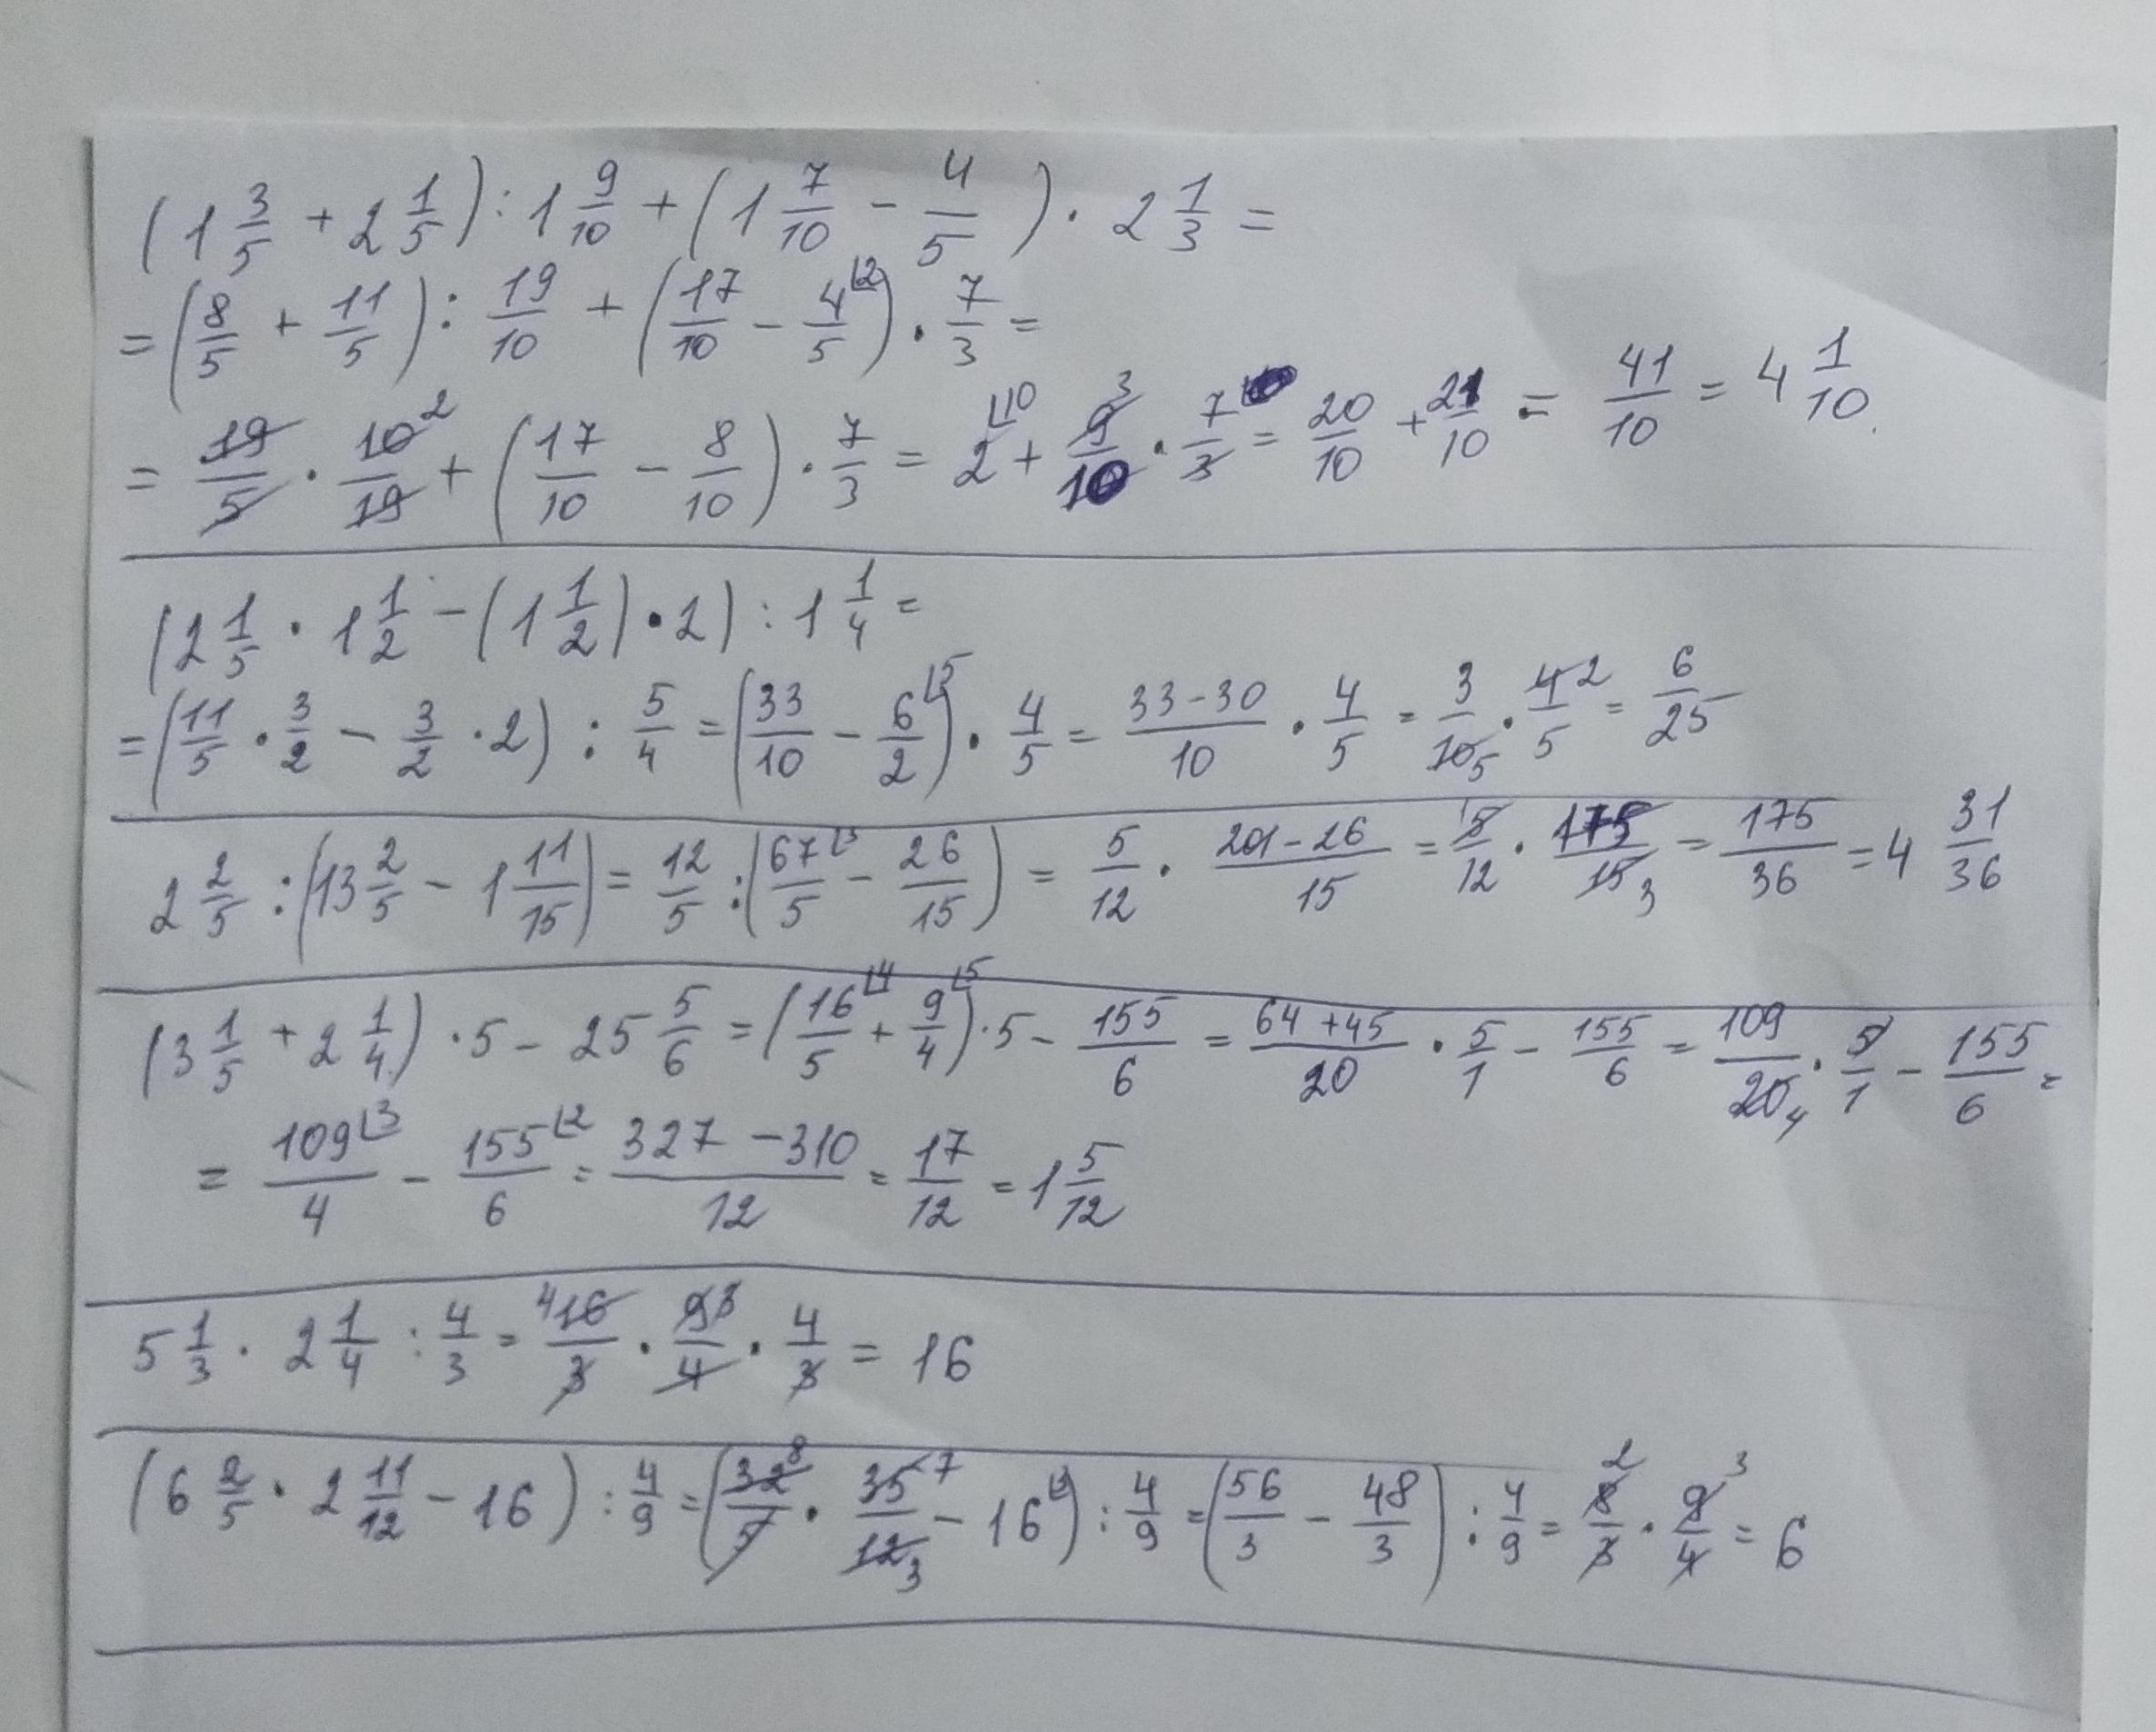 (1 3/5 + 2 1/5) : 1 9/10 + (1 7/10 - 4/5) · 2 1/3 =
= (8/5 + 11/5) : 19/10 + (17/10 - 4/5 ⌊2) · 7/3 =
= 19/5 · 10/19 2 + (17/10 - 8/10) · 7/3 = 2 ⌊10 + 9 3/10 · 7/3 = 20/10 + 21/10 = 41/10 = 4 1/10.
(2 1/5 · 1 1/2 - (1 1/2) · 2) : 1 1/4 =
= (11/5 · 3/2 - 3/2 · 2) : 5/4 = (33/10 - 6/2 ⌊5) · 4/5 = 33-30/10 · 4/5 = 3/10 5 · 4 2/5 = 6/25
2 2/5 : (13 2/5 - 1 11/15) = 12/5 : (67/5 ⌊3 - 26/15) = 5/12 · 201-26/15 = 1 5/12 · 175/15 3 = 175/36 = 4 31/36
(3 1/5 + 2 1/4) · 5 - 25 5/6 = (16/5 ⌊4 + 9/4 ⌊5) · 5 - 155/6 = 64+45/20 · 5/1 - 155/6 = 109/20 4 · 5/1 - 155/6 =
= 109/4 ⌊3 - 155/6 ⌊2 = 327-310/12 = 17/12 = 1 5/12
5 1/3 · 2 1/4 : 4/3 = 4 16/3 · 9 3/4 · 4/3 = 16
(6 2/5 · 2 11/12 - 16) : 4/9 = (32 8/5 · 35 7/12 3 - 16 ⌊3) : 4/9 = (56/3 - 48/3) : 4/9 = 8 2/3 · 9 3/4 = 6